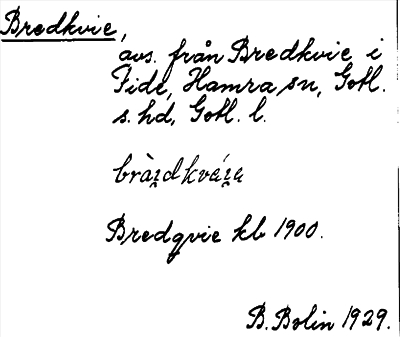 Bredkvie,
avs. från Bredkvie i
Fide, Hamra sn, Gotl.
s. hd, Gotl. l.
Bredqvie kb 1900.
B. Bolin 1929.